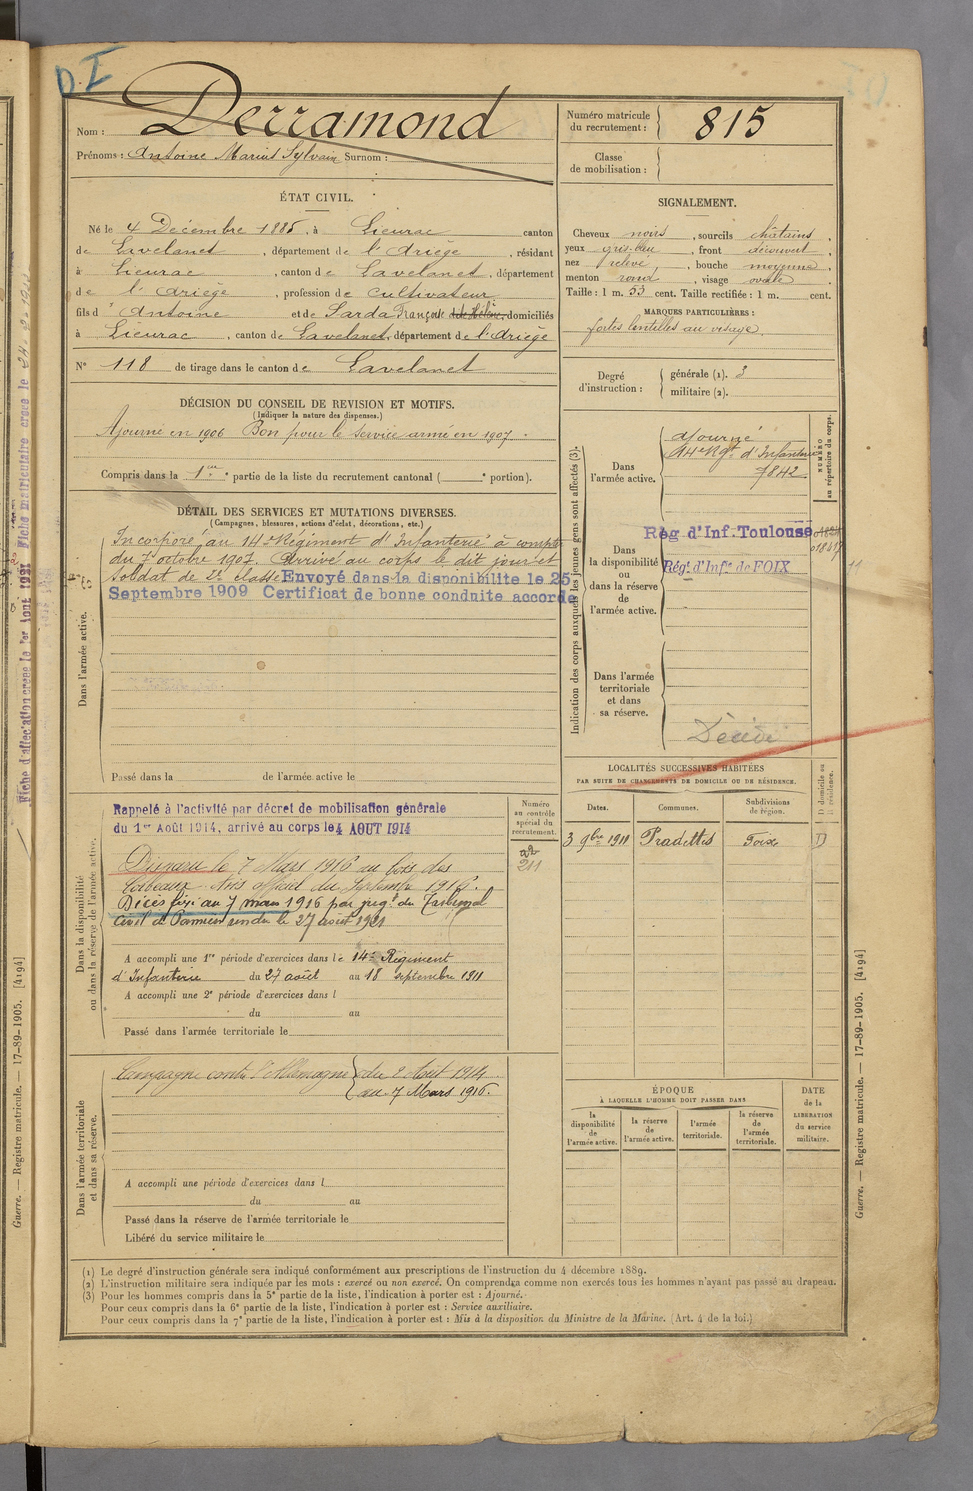 DI
Nom : Derramond
Prénoms : Antoine Marius Sylvain Surnom :
Numéro matricule du recrutement : 815
Classe de mobilisation :
ÉTAT CIVIL.
Né le 4 Décembre 1885, à Lieurac canton
de Lavelanet, département de l'Ariège, résidant
à Lieurac, canton de Lavelanet, département
de l'Ariège, profession de cultivateur
fils d'Antoine et de Sarda Françoise domiciliés
à Lieurac, canton de Lavelanet, département de l'Ariège
N° 118 de tirage dans le canton de Lavelanet
SIGNALEMENT.
Cheveux noirs, sourcils châtains,
yeux gris-bleu, front découvert,
nez relevé, bouche moyenne,
menton rond, visage ovale.
Taille : 1 m. 53 cent. Taille rectifiée : 1 m. cent.
MARQUES PARTICULIÈRES :
fortes lentilles au visage.
Degré d'instruction : générale (1). 3
militaire (2).
DÉCISION DU CONSEIL DE REVISION ET MOTIFS.
(Indiquer la nature des dispenses.)
Ajourné en 1906 Bon pour le service armé en 1907.
Compris dans la 1re partie de la liste du recrutement cantonal ( e portion).
DÉTAIL DES SERVICES ET MUTATIONS DIVERSES.
(Campagnes, blessures, actions d'éclat, décorations, etc.)
Dans l'armée active.
Incorporé au 14e Régiment d'Infanterie à compter
du 7 octobre 1907. Arrivé au corps le dit jour et
soldat de 2e classe Envoyé dans la disponibilité le 25
Septembre 1909 Certificat de bonne conduite accordé
Passé dans la de l'armée active le
Indication des corps auxquels les jeunes gens sont affectés (3).
NUMÉRO au répertoire du corps.
Dans l'armée active.
Ajourné
14e Rgt d'Infanterie
7842
Dans la disponibilité ou dans la réserve de l'armée active.
Rég d'Inf. Toulouse
Régt d'Infie de FOIX
Dans l'armée territoriale et dans sa réserve.
Décédé
LOCALITÉS SUCCESSIVES HABITÉES
PAR SUITE DE CHANGEMENTS DE DOMICILE OU DE RÉSIDENCE.
Dates. Communes. Subdivisions de région. D domicile ou R résidence.
3 9bre 1911 Pradettes Foix D
Dans la disponibilité ou dans la réserve de l'armée active.
Numéro au contrôle spécial du recrutement.
211
Rappelé à l'activité par décret de mobilisation générale
du 1er Août 1914, arrivé au corps le 4 AOUT 1914
Disparu le 7 Mars 1916 au bois des
Corbeaux. Avis officiel du Septembre 1916.
Décès fixé au 7 mars 1916 par jugt du Tribunal
Civil de Pamiers rendu le 27 août 1921
A accompli une 1re période d'exercices dans le 14e Régiment
d'Infanterie du 27 août au 18 septembre 1911
A accompli une 2e période d'exercices dans l
du au
Passé dans l'armée territoriale le
Dans l'armée territoriale et dans sa réserve.
Campagne contre l'Allemagne du 2 Août 1914
au 7 Mars 1916.
A accompli une période d'exercices dans l
du au
Passé dans la réserve de l'armée territoriale le
Libéré du service militaire le
ÉPOQUE
À LAQUELLE L'HOMME DOIT PASSER DANS
la disponibilité de l'armée active. la réserve de l'armée active. l'armée territoriale. la réserve de l'armée territoriale.
DATE de la LIBÉRATION du service militaire.
(1) Le degré d'instruction générale sera indiqué conformément aux prescriptions de l'instruction du 4 décembre 1889.
(2) L'instruction militaire sera indiquée par les mots : exercé ou non exercé. On comprendra comme non exercés tous les hommes n'ayant pas passé au drapeau.
(3) Pour les hommes compris dans la 5e partie de la liste, l'indication à porter est : Ajourné.
Pour ceux compris dans la 6e partie de la liste, l'indication à porter est : Service auxiliaire.
Pour ceux compris dans la 7e partie de la liste, l'indication à porter est : Mis à la disposition du Ministre de la Marine. (Art. 4 de la loi.)
Guerre. — Registre matricule. — 17-89-1905. [4194]
Guerre. — Registre matricule. — 17-89-1905. [4194]